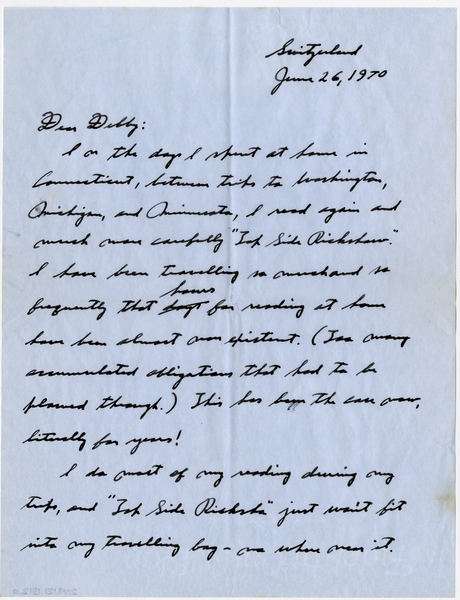 Switzerland
June 26, 1970
Dear Debby:
I on the days I spent at home in
Connecticut, between trips to Washington,
Michigan, and Minnesota, I read again and
much more carefully "Top Side Rickshaw".
I have been travelling so much and so
hours
frequently that days for reading at home
have been almost non existent. (Too many
accumulated obligations that had to be
plowed through.) This has been the case now,
literally for years!
I do most of my reading during my
trips, and "Top Side Ricksha" just won't fit
into my travelling bag - no where near it.